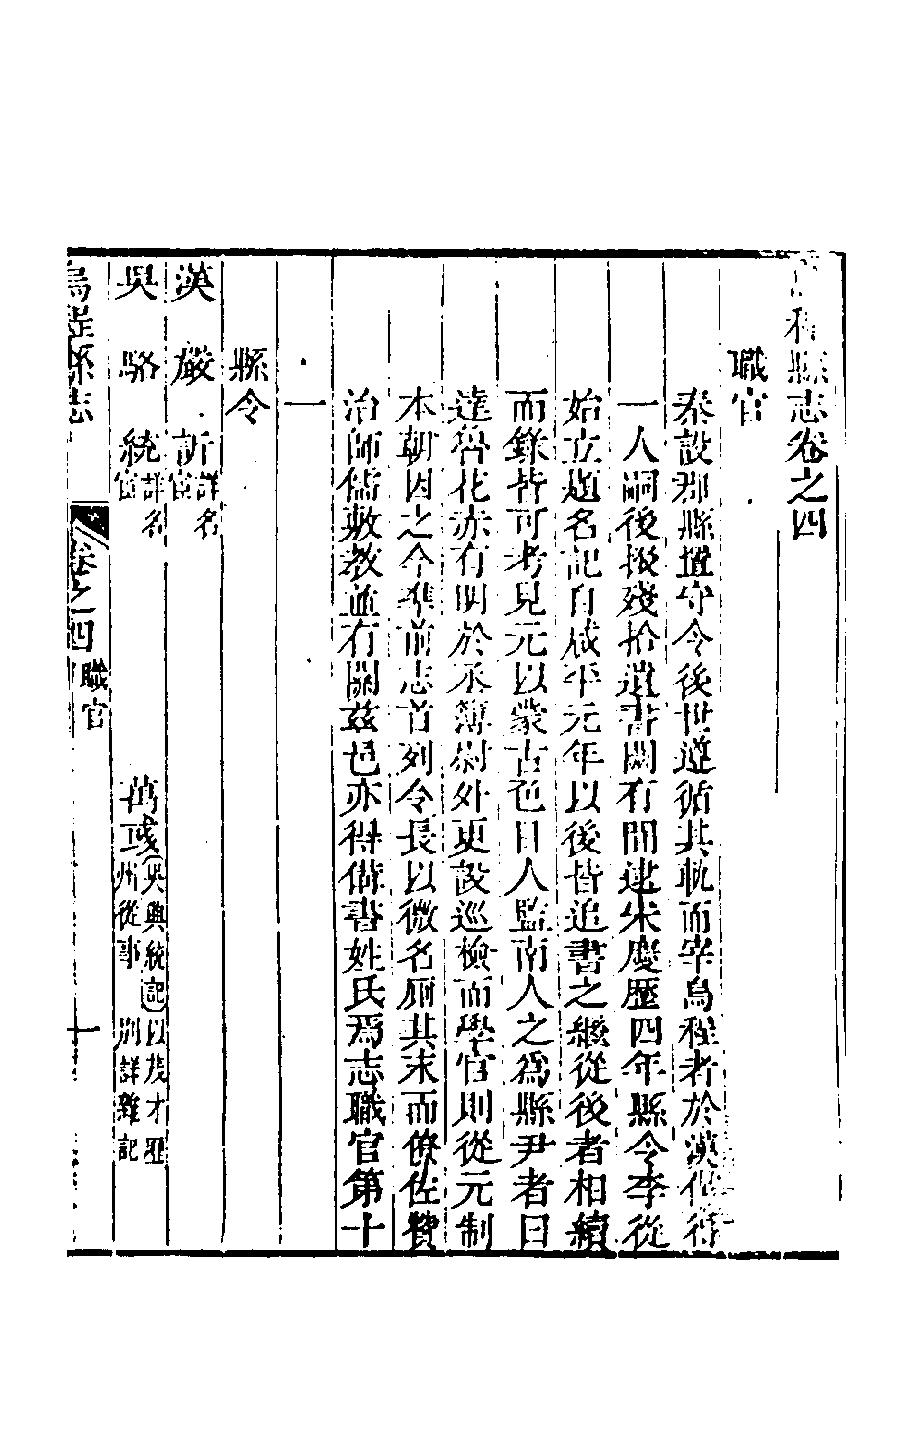 烏程縣志卷之四
職官
秦設郡縣置守令後世遵循其軌而宰烏程者於漢僅得
一人嗣後掇殘拾遺書闕有間逮宋慶歷四年縣令李從
始立題名記自咸平元年以後皆追書之繼從後者相續
而錄皆可考見元以蒙古色目人監南人之為縣尹者曰
達魯花赤有明於丞簿尉外更設巡檢而學官則從元制
本朝因之今準前志首列令長以微名厠其末而僚佐贊
治師儒敷教並有關茲邑亦得備書姓氏焉志職官第十
一
縣令
漢 嚴訢詳名宦
吳 駱統詳名宦 萬彧吳興統記以茂才歷州從事 別詳雜記
烏程縣志 卷之四 職官 一